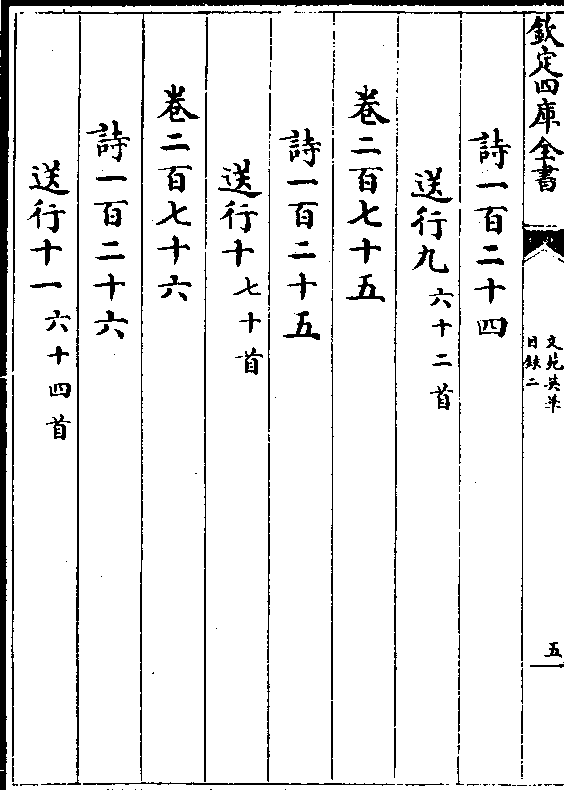 欽定四庫全書
文苑英華
目録二
五
詩一百二十四
送行九六十二首
卷二百七十五
詩一百二十五
送行十七十首
卷二百七十六
詩一百二十六
送行十一六十四首